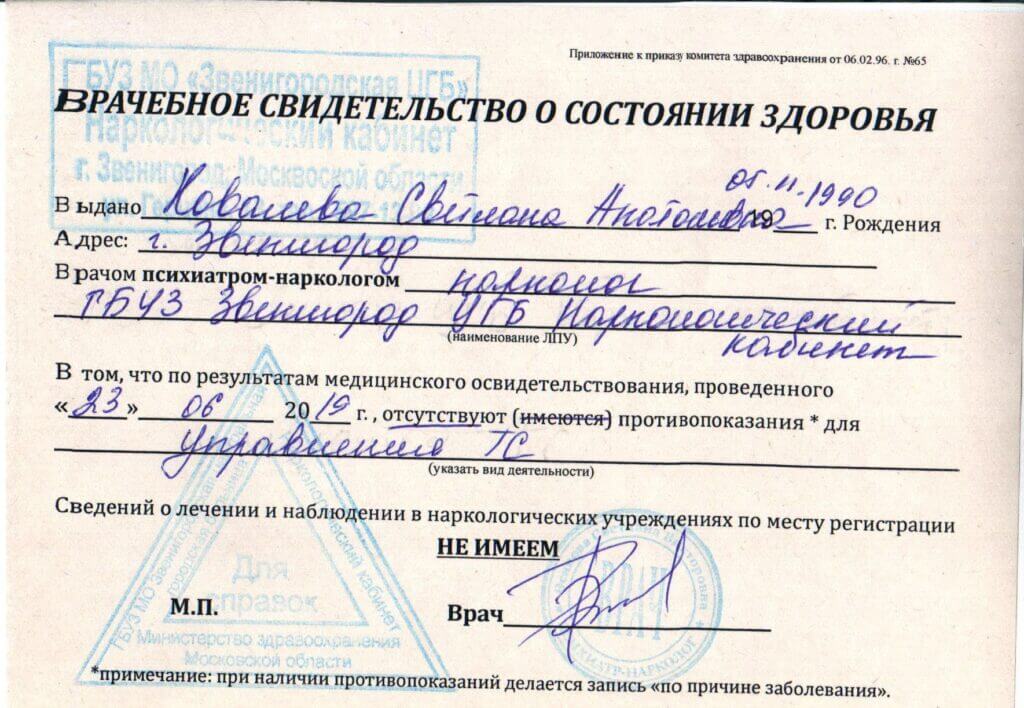 Приложение к приказу комитета здравоохранения от 06.02.96. г. №65
ГБУЗ МО «Звенигородская ЦГБ»
ВРАЧЕБНОЕ СВИДЕТЕЛЬСТВО О СОСТОЯНИИ ЗДОРОВЬЯ
Наркологический кабинет
г. Звенигород, Московской области
05.11.1990
Выдано Ковалева Светлана Анатольевна 19 г. Рождения
Адрес: г. Звенигород
Врачом психиатром-наркологом нарколог
ГБУЗ Звенигород ЦГБ Наркологический
(наименование ЛПУ) кабинет
В том, что по результатам медицинского освидетельствования, проведенного
«23» 06 2019 г., отсутствуют (имеются) противопоказания * для
управления ТС
(указать вид деятельности)
Сведений о лечении и наблюдении в наркологических учреждениях по месту регистрации
НЕ ИМЕЕМ
Для
справок
М.П. Врач
ВРАЧ
ПСИХИАТР-НАРКОЛОГ
ГБУЗ МО Звенигородская центральная
городская больница
Наркологический кабинет
Министерство здравоохранения
Московской области
*примечание: при наличии противопоказаний делается запись «по причине заболевания».